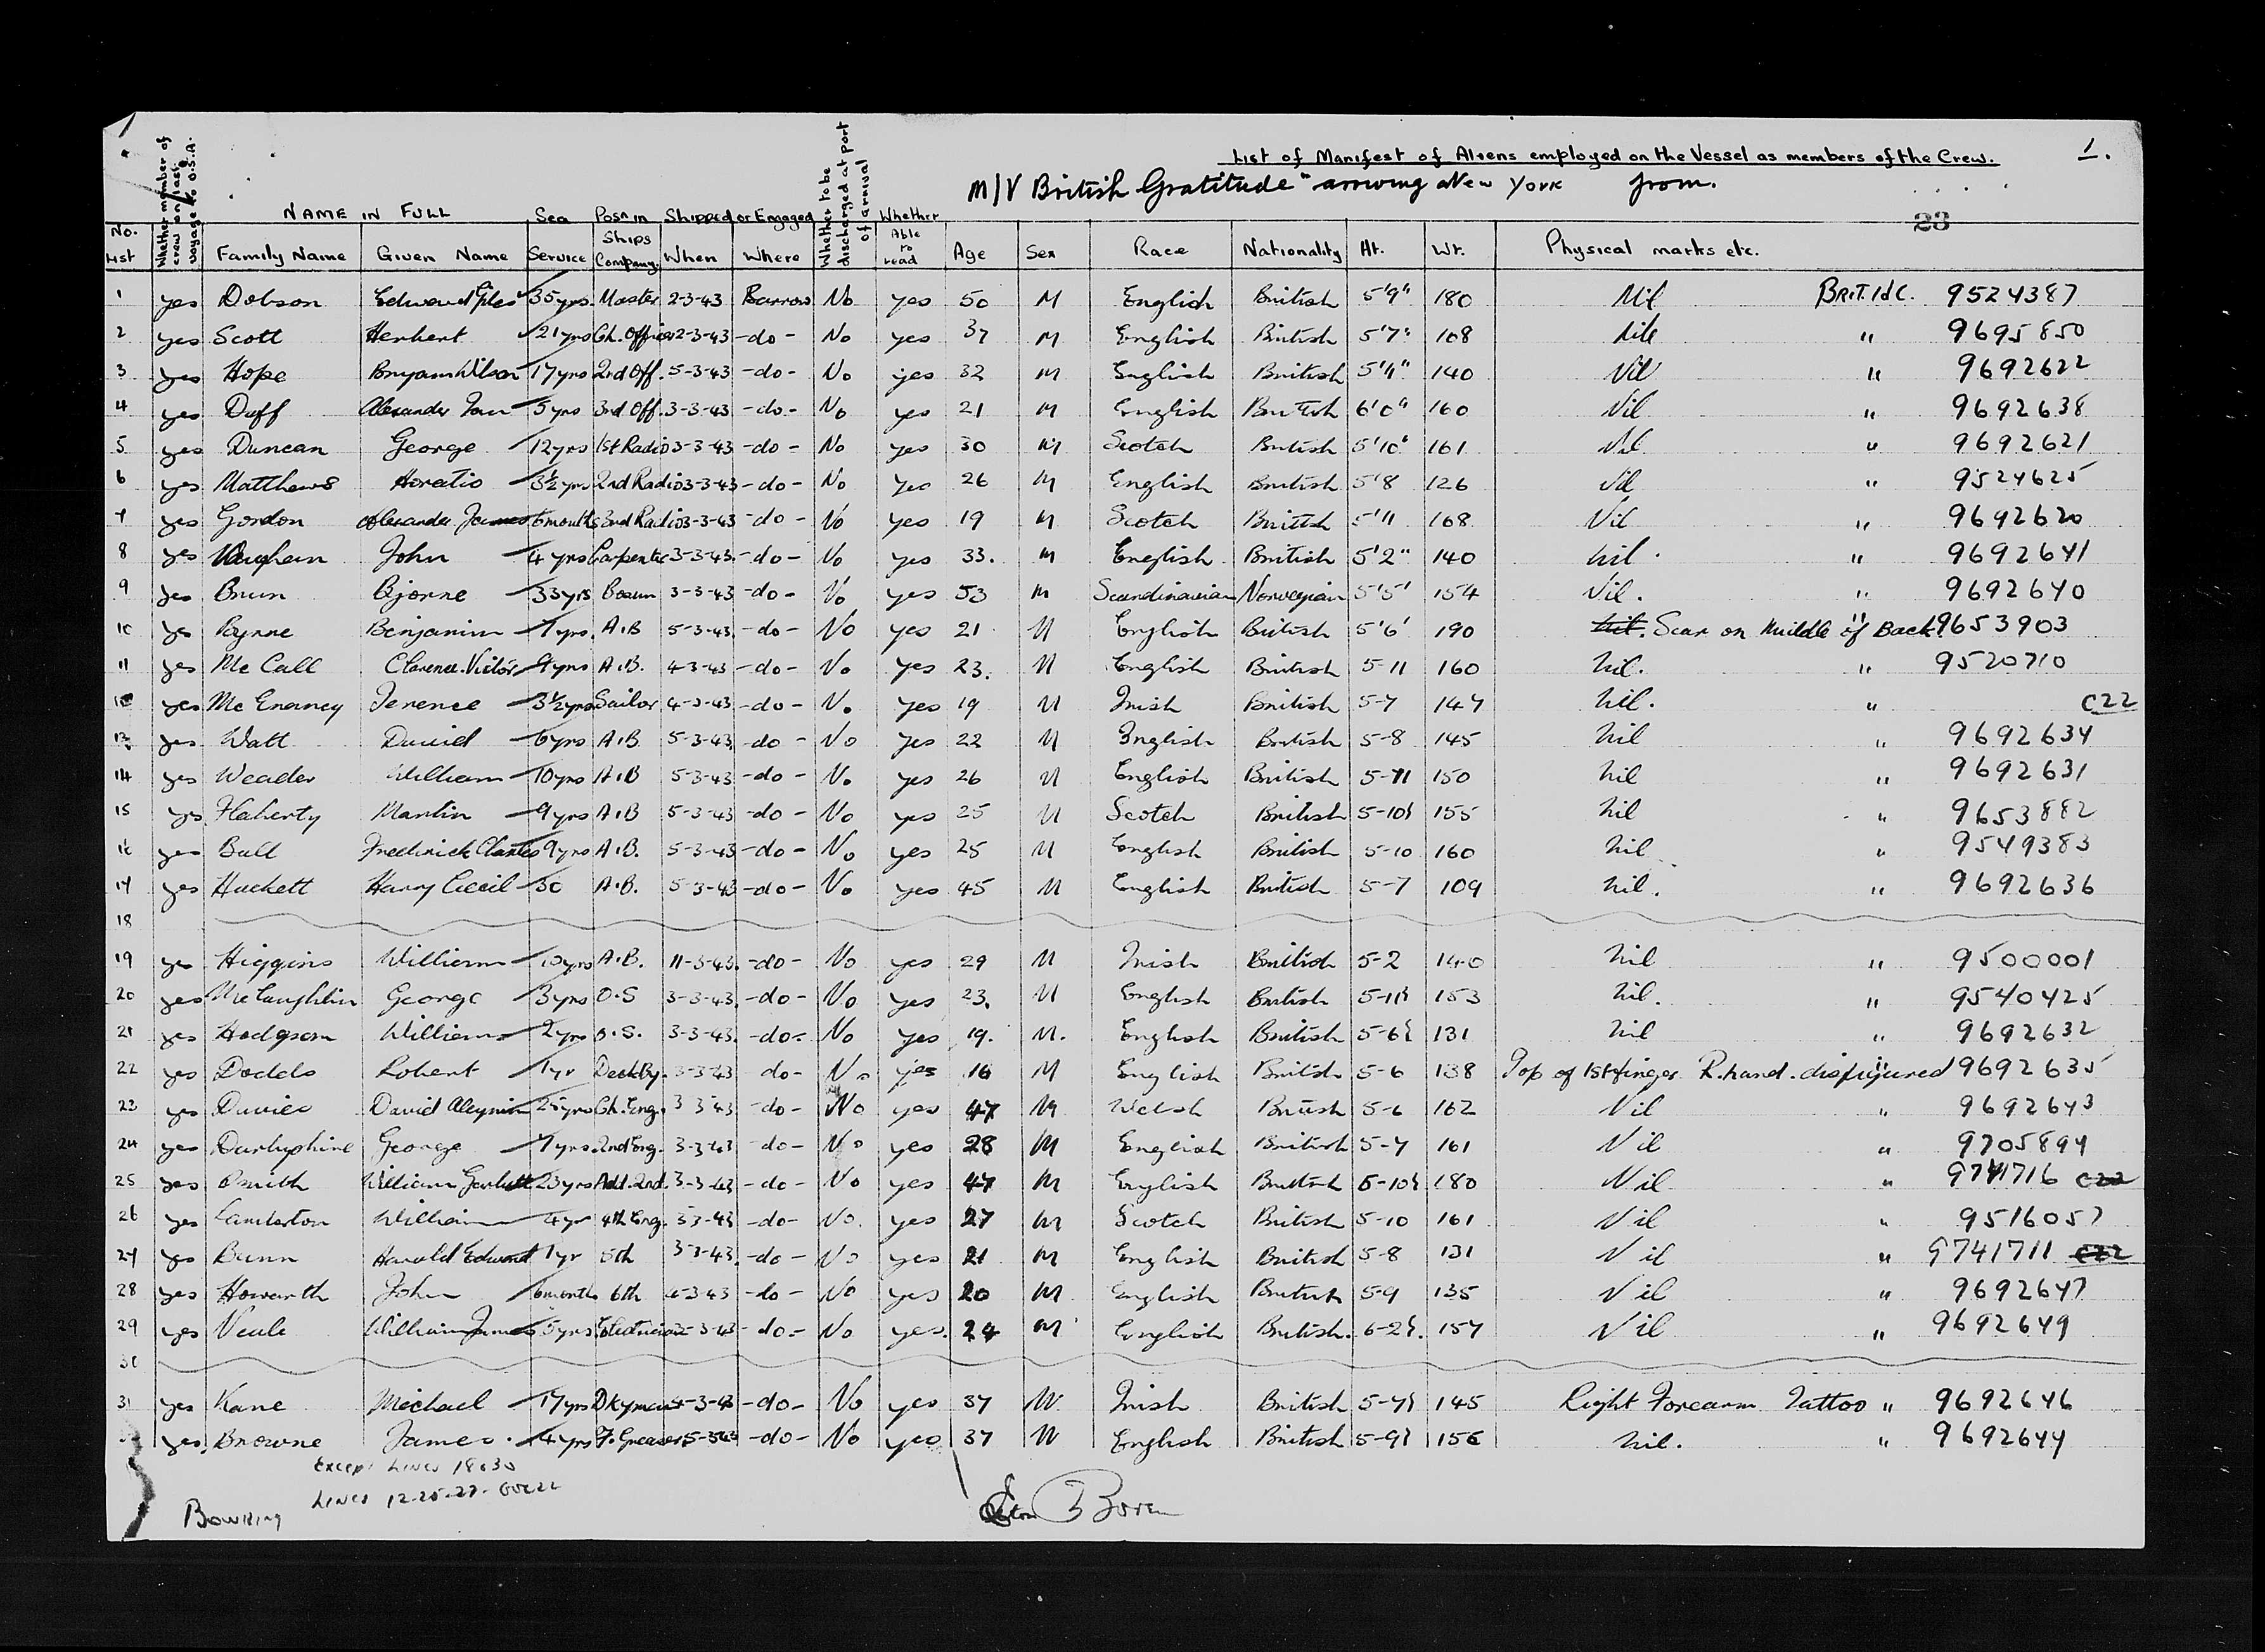 List of Manifest of Aliens employed on the Vessel as members of the Crew. 1.
M/V British Gratitude" arriving New York from.
23
Whether member of crew on last voyage to U.S.A.
Whether to be discharged at port of arrival
NAME IN FULL Sea Posn in Shipped or Engaged Whether
No. List Family Name Given Name Service Ships Company. When Where Able to read Age Sex Race Nationality Ht. Wt. Physical marks etc.
1 yes Dobson Edward Giles 35yrs. Master 2-3-43 Barrow No yes 50 M English British 5'9" 180 Nil BRIT.IdC. 9524387
2 yes Scott Herbert 21yrs Ch. Officer 2-3-43 -do- No yes 37 M English British 5'7" 168 Nil " 9695850
3 yes Hope Bryam Wilson 17yrs 2nd Off. 5-3-43 -do- No yes 32 M English British 140 Nil " 9692622
4 yes Duff Alexander Ian 5yrs 3rd Off. 3-3-43 -do- No yes 21 M English British 6'0" 160 Nil " 9692638
5 yes Duncan George 12yrs 1st Radio 3-3-43 -do- No yes 30 M Scotch British 5'10" 161 Nil " 9692621
6 yes Matthews Horatio 3½yrs 2nd Radio 3-3-43 -do- No yes 26 M English British 5'8 126 Nil " 9524625
7 yes Gordon Alexander James 6months 3rd Radio 3-3-43 -do- No yes 19 M Scotch British 5'11 168 Nil " 9692620
8 yes Vaughan John 4 yrs Carpenter 3-3-43. -do- No yes 33. M English British 5'2" 140 nil. " 9692641
9 yes Brun Bjorne 33yrs Bosun 3-3-43 -do- No yes 53 M Scandinavian Norwegian 5'5' 154 Nil. " 9692640
10 yes Byrne Benjamin 7yrs. A.B 5-3-43. -do- No yes 21 M English British 5'6' 190 nil. Scar on Middle of Back " 9653903
11 yes McCall Clarence Victor 9yrs A.B. 4-3-43 -do- No yes 23. M English British 5-11 160 nil. " 9520710
12 yes McEnaney Terence 3½yrs Sailor 4-3-43 -do- No. yes 19 M Irish British 5-7 147 nil. " C22
13 yes Watt David 6yrs A.B. 5-3-43 -do- No yes 22 M English British 5-8 145 nil " 9692634
14 yes Weader William 10yrs A.B 5-3-43 -do- No. yes 26 M English British 5-11 150 nil " 9692631
15 yes Flaherty Martin 9yrs A.B 5-3-43 -do- No yes 25 M Scotch British 5-10½ 155 nil " 9653882
16 yes Ball Frederick Charles 9yrs A.B. 5-3-43 -do- No yes 25 M English British 5-10 160 nil " 9549383
17 yes Hackett Harry Cecil 30 A.B. 5-3-43 -do- No yes 45 M English British 5-7 109 nil. " 9692636
18
19 yes Higgins William 10yrs A.B. 11-3-43. -do- No yes 29 M Irish British 5-2 140 nil " 9500001
20 yes McLaughlin George 3yrs O.S 3-3-43. -do- No yes 23. M English British 5-11½ 153 nil. " 9540425
21 yes Hodgson William 2yrs O.S. 3-3-43. -do- No yes 19. M. English British 5-6½ 131 nil " 9692632
22 yes Dodds Robert 1yr Deck By. 3-3-43 do- No yes 16 M English British 5-6 138 Top of 1st finger R.hand. disfigured " 9692635
23 yes Davies David 25yrs Ch. Eng. 3 3 43 -do- No yes 47 M Welsh British 5-6 162 Nil " 9692643
24 yes Darbyshire George 7yrs. 2nd Eng. 3-3-43 do- No yes 28 M English British 5-7 161 Nil " 9705894
25 yes Smith William 23yrs Add. 2nd. 3-3-43 -do- No yes 47 M English British 5-10½ 180 Nil " 9741716 C22
26 yes Lamberton William 4yr 4th Eng. 3-3-43 -do- No. yes 27 M Scotch British 5-10 161 Nil " 9516057
27 yes Bunn Harold Edward 1yr 5th 3-3-43. -do- No yes 21 M English British 5-8 131 Nil " 9741711 C22
28 yes Howarth John 6months 6th 4-3-43 -do- No yes 20 M English British 5-9 135 Nil " 9692647
29 yes Veale William James 5yrs Electrician 3-3-43 -do- No yes. 24 M English British. 6-2½. 157 Nil " 9692649
30
31 yes Kane Michael 17yrs Dkyman 4-3-43 -do- No yes 37 M Irish British 5-7½ 145 Right Forearm Tattoo " 9692646
yes. Browne James. 4yrs F. Greaser 5-3-43 -do- No yes 37 M English British 5-9½ 156 nil. " 9692644
Except Lines 18.30
Lines 12-25-27-
Bowring